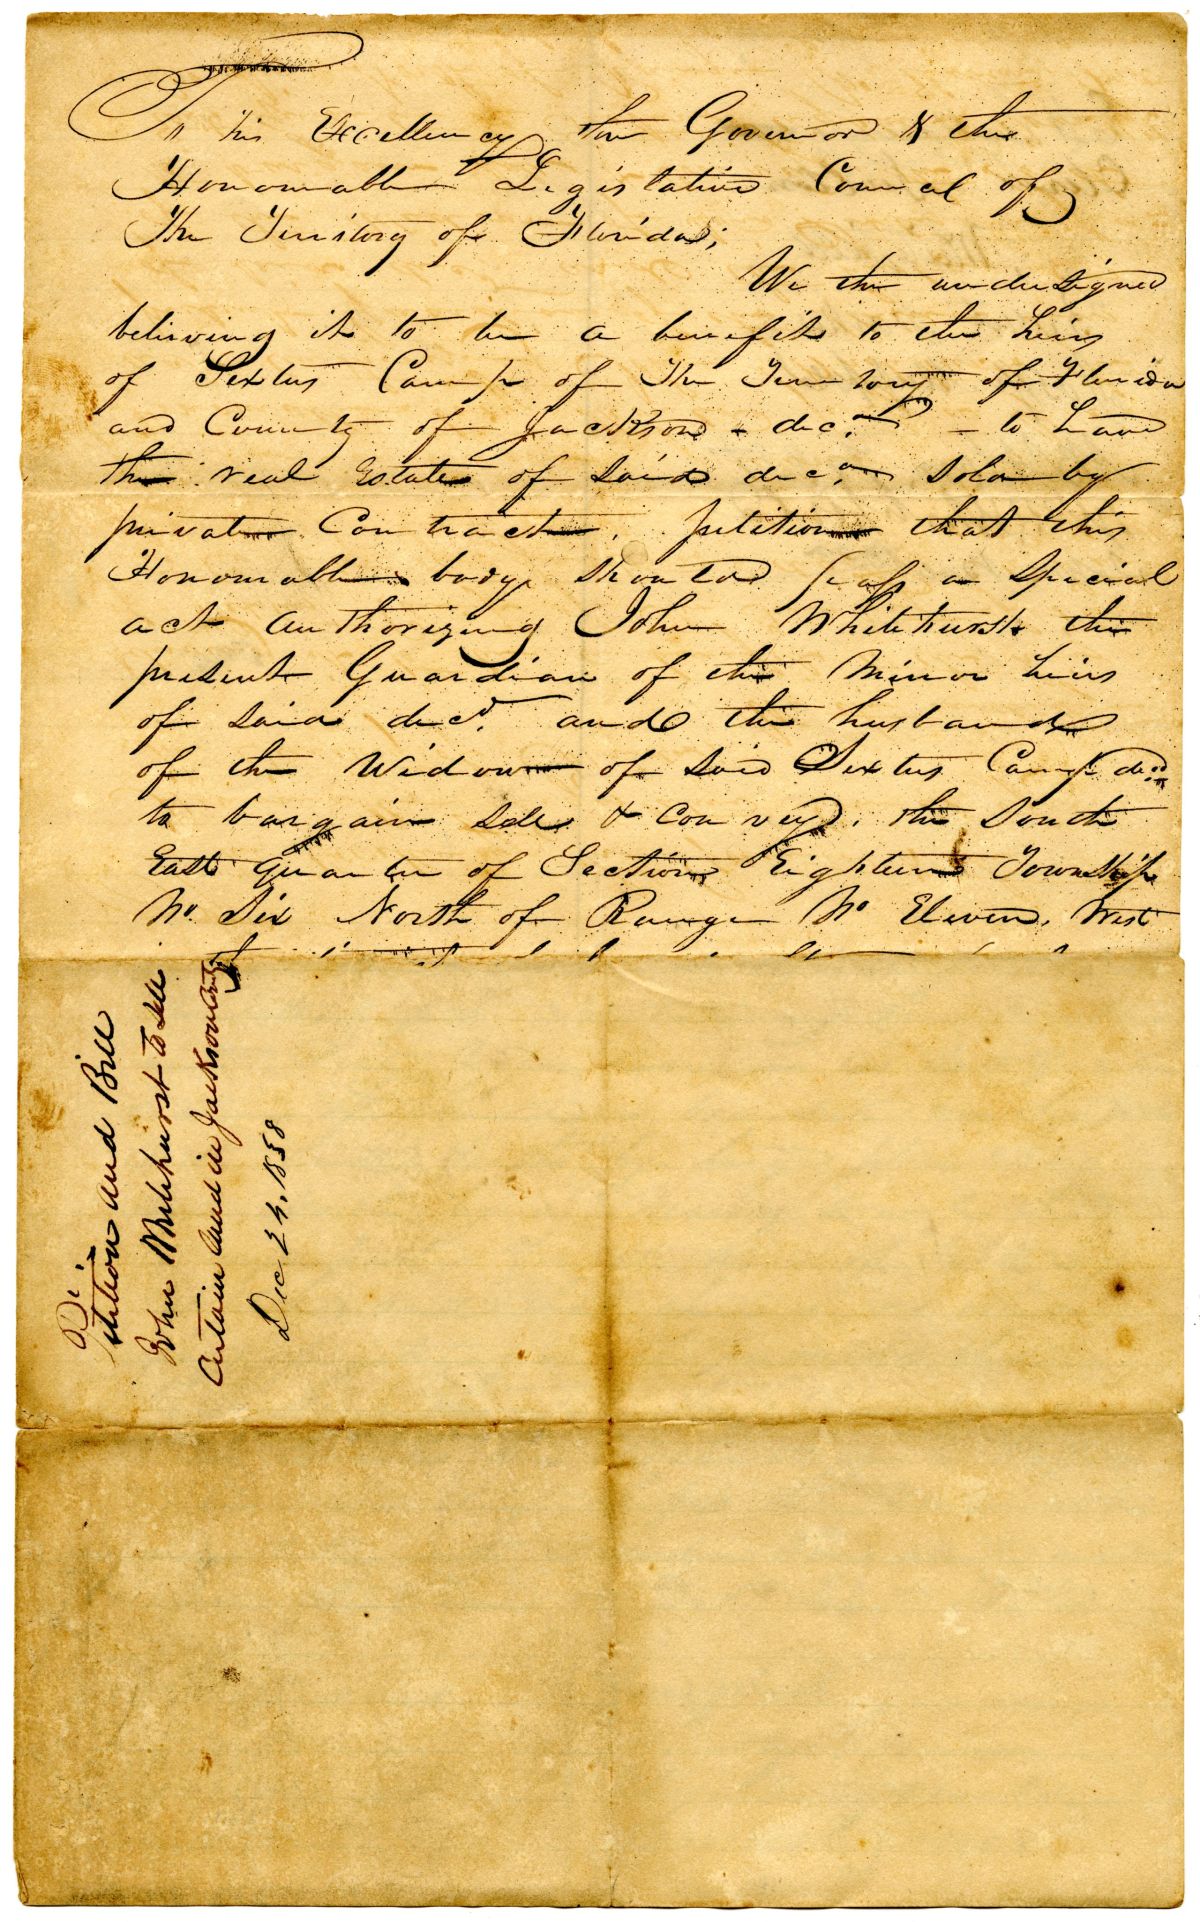 To his Excellency the Governor & the
Honourable Legislative Councel of
The Territory of Florida;
We the undersigned
believing it to be a benefit to the heirs
of Sextus Camp of The Territory of Florida
and County of Jackson - decd - to have
the real Estate of said decd sold by
private Contract, petition that this
Honourable body should pass a special
act authorizing John Whitehurst the
present Guardian of the Minor heirs
of said decd. and the husband
of the Widow of said Sextus Camp decd
to bargain sell & convey. the South
East quarter of Section Eighteen Township
No. Six North of Range No Eleven, West
Petition and Bill
John Whitehurst to sell
Certain land in Jackson County
Dec 24, 1838